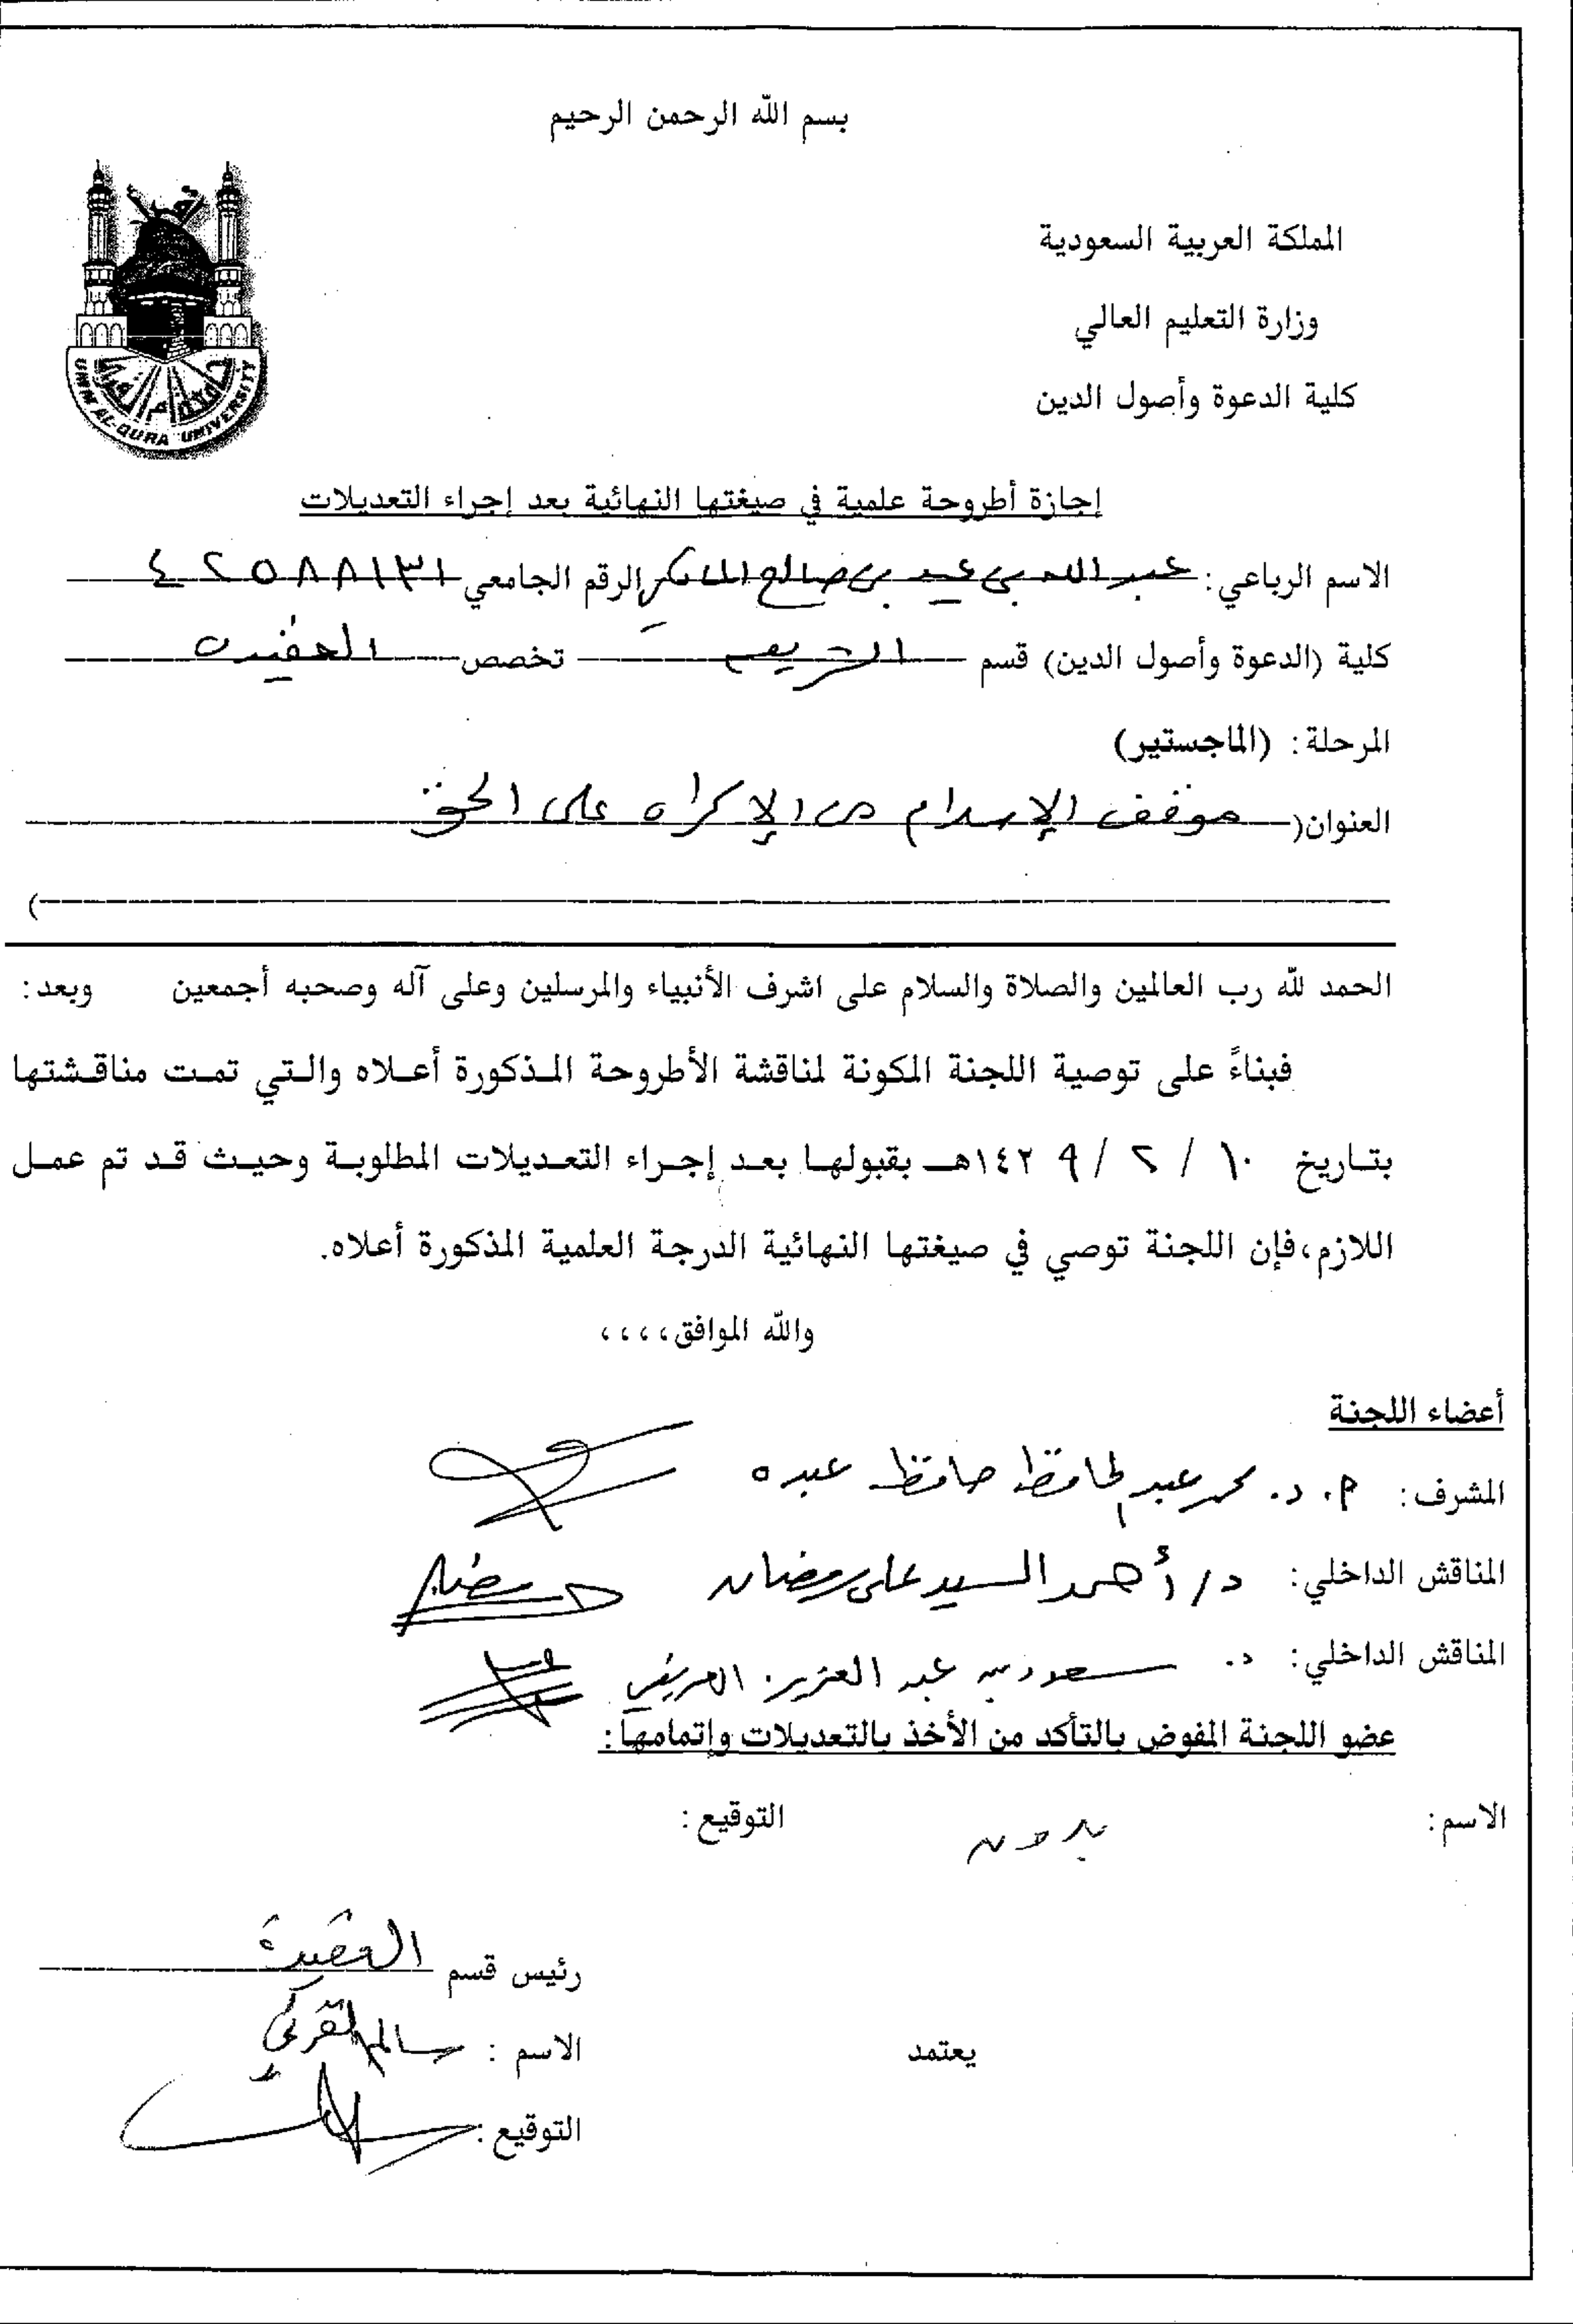 بسم الله الرحمن الرحيم
المملكة العربية السعودية
وزارة التعليم العالي
كلية الدعوة وأصول الدين
جامعة أم القرى
UMM AL-QURA UNIVERSITY
إجازة أطروحة علمية في صيغتها النهائية بعد إجراء التعديلات
الاسم الرباعي: عبد الله بن عيد بن صالح الرقم الجامعي ٤٢٥٨٨١٣١
كلية (الدعوة وأصول الدين) قسم تخصص العقيدة
المرحلة: (الماجستير)
العنوان( موقف الإسلام من الإكراه على الحق
)
الحمد لله رب العالمين والصلاة والسلام على اشرف الأنبياء والمرسلين وعلى آله وصحبه أجمعين وبعد:
فبناءً على توصية اللجنة المكونة لمناقشة الأطروحة المذكورة أعلاه والتي تمت مناقشتها
بتاريخ ١٠ / ٢ / ١٤٢٩هـ بقبولها بعد إجراء التعديلات المطلوبة وحيث قد تم عمل
اللازم،فإن اللجنة توصي في صيغتها النهائية الدرجة العلمية المذكورة أعلاه.
والله الموافق،،،،
أعضاء اللجنة
المشرف: أ. د. محمد عبد الحافظ حافظ عبده
المناقش الداخلي: د/ أحمد السيد على رمضان
المناقش الداخلي: د. سعود بن عبد العزيز العريفي
عضو اللجنة المفوض بالتأكد من الأخذ بالتعديلات وإتمامها:
الاسم: بدون التوقيع:
رئيس قسم العقيدة
يعتمد الاسم : سالم القرني
التوقيع: